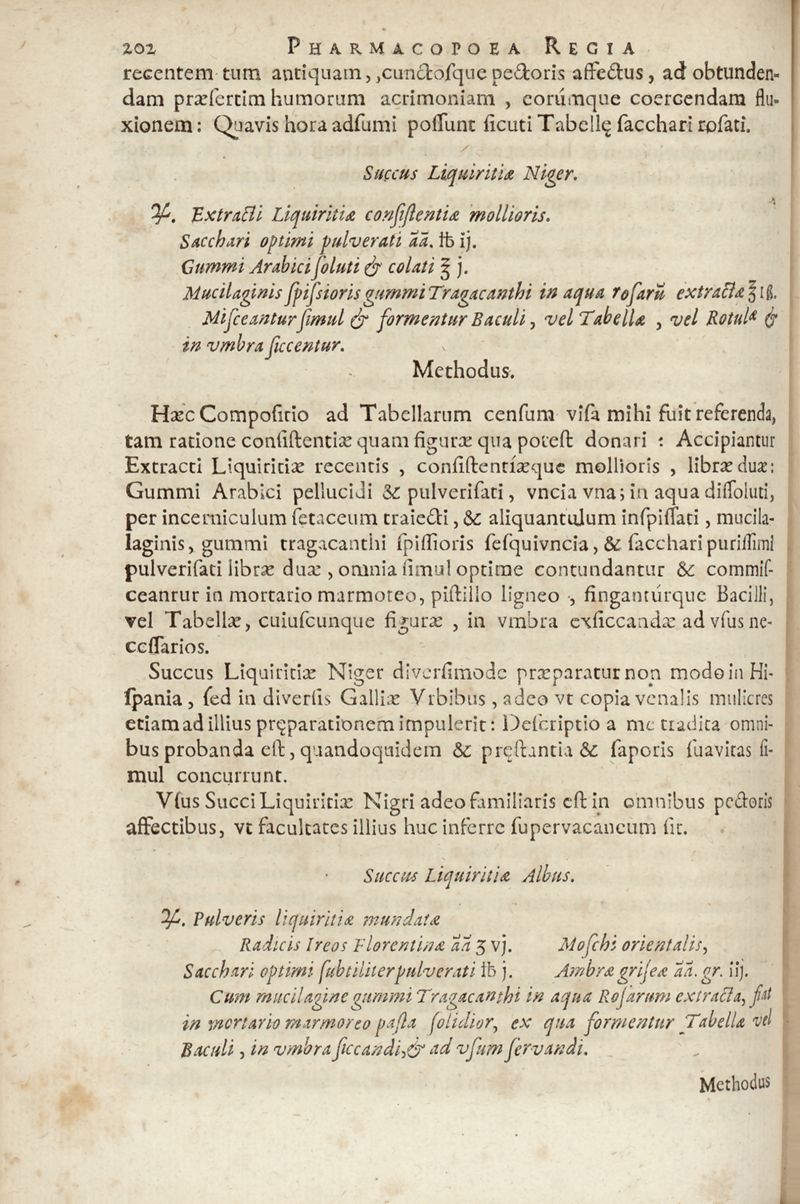 202 PHARMACOPOEA REGIA
recentem tum antiquam, ,cunctoſque pectoris affectus, ad obtunden-
dam præſertim humorum acrimoniam , eorúmque coercendam flu-
xionem: Quavis hora adſumi poſſunt ſicuti Tabellę ſacchari roſati.
Succus Liquiritiæ Niger.
℞. Extracti Liquiritiæ conſiſtentiæ mollioris.
Sacchari optimi pulverati āā. ℔ ij.
Gummi Arabici ſoluti & colati ℥ j.
Mucilaginis ſpiſsioris gummi Tragacanthi in aqua roſarū extractæ ℥ iß.
Miſceantur ſimul & formentur Baculi, vel Tabellæ , vel Rotulæ &
in vmbra ſiccentur.
Methodus.
Hæc Compoſitio ad Tabellarum cenſum viſa mihi fuit referenda,
tam ratione conſiſtentiæ quam figuræ qua poteſt donari : Accipiantur
Extracti Liquiritiæ recentis , conſiſtentíæque mollioris , libræ duæ:
Gummi Arabici pellucidi & pulveriſati, vncia vna; in aqua diſſoluti,
per incerniculum ſetaceum traiecti, & aliquantulum inſpiſſati, mucila-
laginis, gummi tragacanthi ſpiſſioris ſeſquivncia, & ſacchari puriſſimi
pulveriſati libræ duæ , omnia ſimul optime contundantur & commiſ-
ceantur in mortario marmoreo, piſtillo ligneo , fingantúrque Bacilli,
vel Tabellæ, cuiuſcunque figuræ , in vmbra exſiccandæ ad vſus ne-
ceſſarios.
Succus Liquiritiæ Niger diverſimode præparatur non modo in Hi-
ſpania, ſed in diverſis Galliæ Vrbibus, adeo vt copia venalis mulieres
etiam ad illius pręparationem impulerit: Deſcriptio a me tradita omni-
bus probanda eſt, quandoquidem & pręſtantia & ſaporis ſuavitas ſi-
mul concurrunt.
Vſus Succi Liquiritiæ Nigri adeo familiaris eſt in omnibus pectoris
affectibus, vt facultates illius huc inferre ſupervacaneum ſit.
Succus Liquiritiæ Albus.
℞. Pulveris liquiritiæ mundatæ
Radicis Ireos Florentinæ āā ʒ vj. Moſchi orientalis,
Sacchari optimi ſubtiliter pulverati ℔ j. Ambræ griſeæ āā. gr. iij.
Cum mucilagine gummi Tragacanthi in aqua Roſarum extracta, fiat
in mortario marmoreo paſta ſolidior, ex qua formentur Tabellæ vel
Baculi, in vmbra ſiccandi, & ad vſum ſervandi.
Methodus